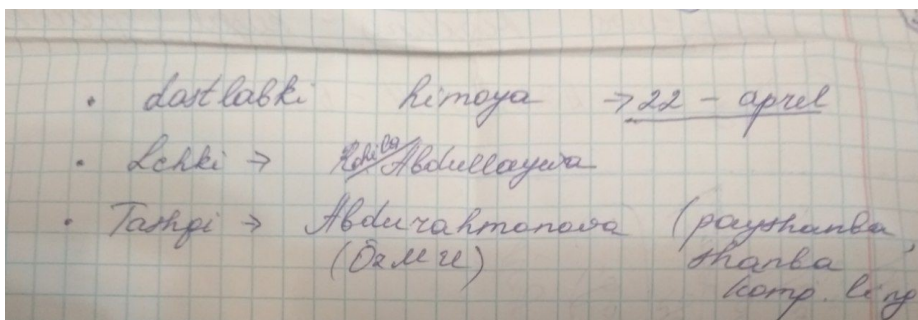 • dastlabki himoya → 22 - aprel
• Ichki → Rohila Abdullayeva
• Tashqi → Abdurahmonova (payshanba,
(OʻzMU) shanba
komp. ling